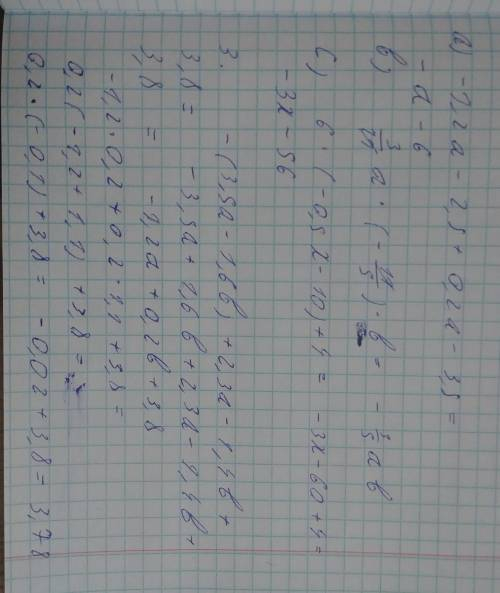 a) -1,2a - 2,5 + 0,2a - 3,5 =
-a - 6
b) 3/11 a · (- 11/5) · b = - 3/5 ab
c) 6 · (-0,5x - 10) + 4 = -3x - 60 + 4 =
-3x - 56
3. -(3,5a - 1,6b) + 2,3a - 1,4b +
3,8 = -3,5a + 1,6b + 2,3a - 1,4b +
3,8 = -1,2a + 0,2b + 3,8
-1,2 · 0,2 + 0,2 · 1,1 + 3,8 =
0,2(-1,2 + 1,1) + 3,8 =
0,2 · (-0,1) + 3,8 = -0,02 + 3,8 = 3,78